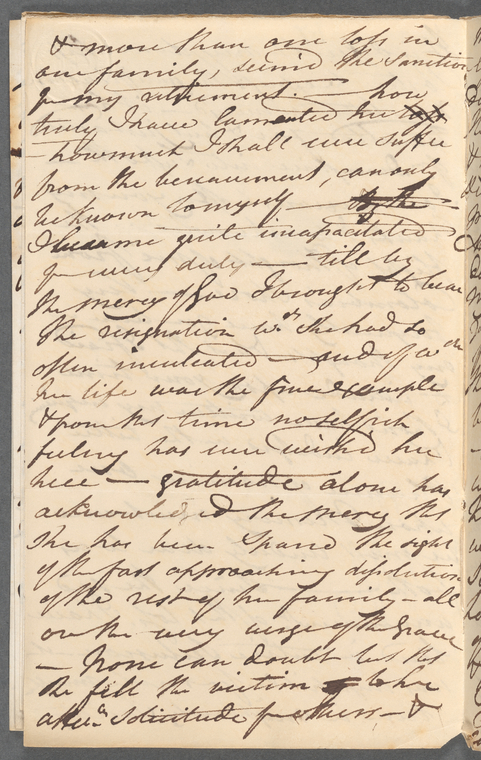 & more than one loss in
our family, seem'd the Sanction
for my retirement. — how
truly I have lamented her loss
— how much I shall ever suffer
from the bereavement, can only
be known to myself — by the
I became quite incapacitated
for every duty — till by
the mercy of God I brought to bear
the resignation wch. She had so
often inculcated — and of wch
her life was the fine example
& from this time no selfish
feeling has ever wish'd her
here — gratitude alone has
acknowledged the mercy tht
She has been Spared the sight
of the fast approaching dissolution
of the rest of her family — all
on the very verge of the Grave
— None can doubt but tht
She fell the victim to her
Solicitude for others — &